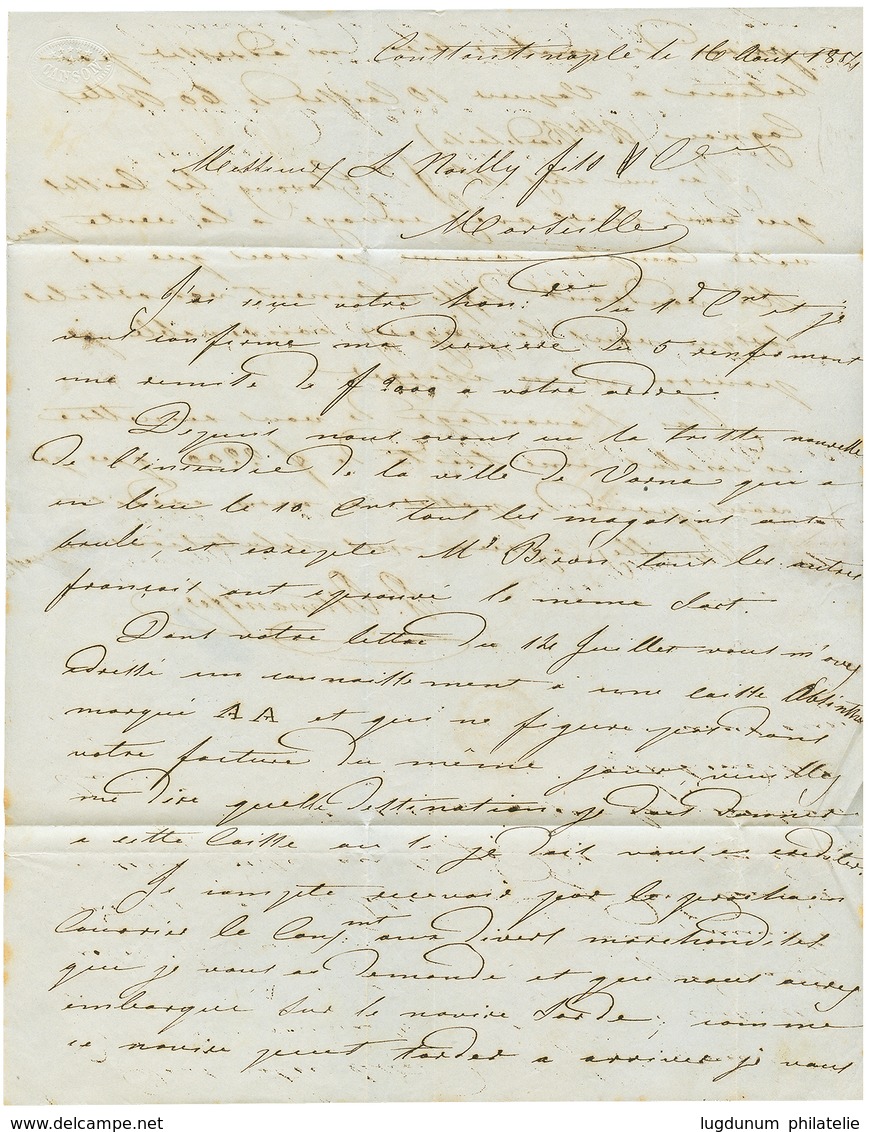 Constantinople le 16 Aout 1854
Messieurs L Noilly fils & Cie
Marseille
J'ai reçu votre hon.ree du 1r Crt et je
vous confirme ma derniere du 5 renfermant
une remise de f 2000 a votre ordre.
Depuis nous avons eu la triste nouvelle
de l'incendie de la ville de Varna qui a
eu lieu le 10 Crt tous les magasins ont
brulé, et excepté Mr tous les autres
français ont eprouvé le même sort.
Dans votre lettre du 14 Juillet vous m'avez
adressé un connaissement d une caisse Absinthe
marqué AA et qui ne figure pas dans
votre facture du même jour, veuillez
me dire quelle destination je dois donner
a cette caisse ou si je dois vous en crediter.
Je compte recevoir par le prochain
Courrier le Consmt aux divers marchandises
que je vous ai demandé et que vous avez
embarqué sur le navire Sarde; comme
ce navire peut tarder a arriver je vous
DANSON
lugdunum philatelie